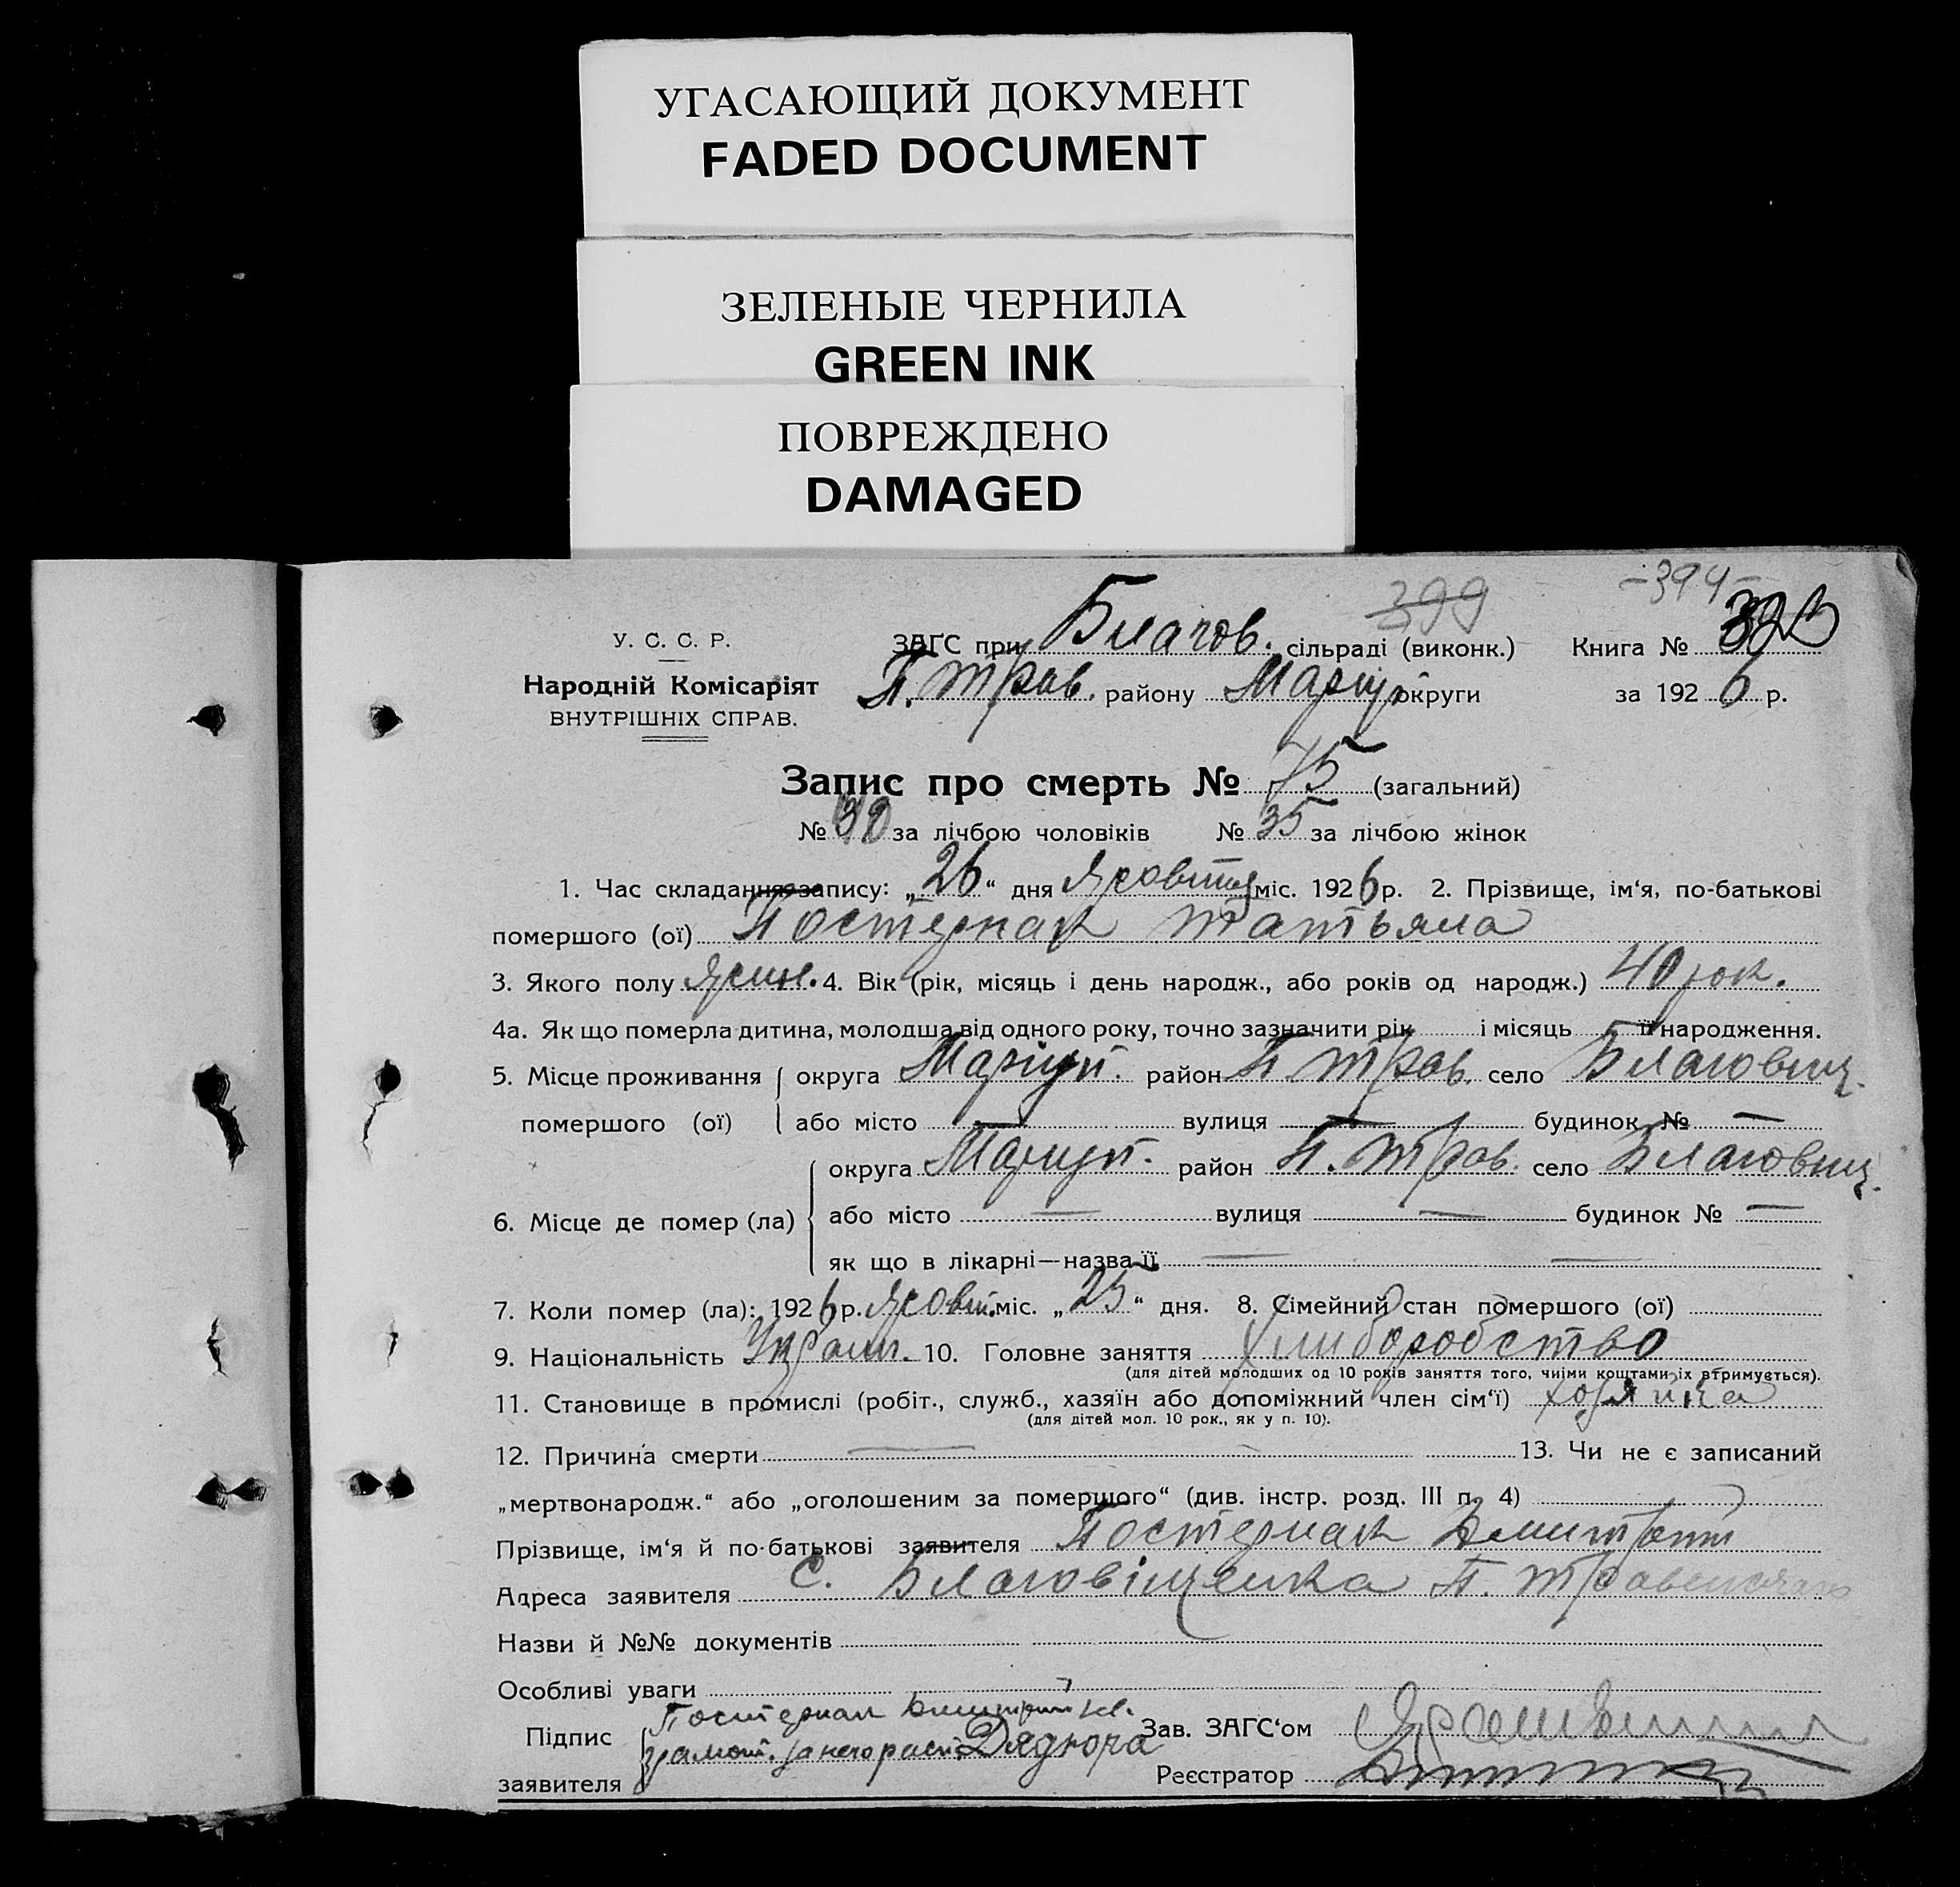 УГАСАЮЩИЙ ДОКУМЕНТ
FADED DOCUMENT
ЗЕЛЕНЫЕ ЧЕРНИЛА
GREEN INK
ПОВРЕЖДЕНО
DAMAGED
399 -394-
У. С. С. Р.
Народній Комісаріят
ВНУТРІШНІХ СПРАВ.
ЗАГС при Благов. сільраді (виконк.) Книга №
П. Трав. району Маріуп округи за 1926 р.
Запис про смерть № 75 (загальний)
№ за лічбою чоловіків № 35 за лічбою жінок
1. Час складання запису: „26“ дня Жовтня міс. 1926 р. 2. Прізвище, ім‘я, по-батькові
помершого (ої) Постернак Татьяна
3. Якого полу жін. 4. Вік (рік, місяць і день народж., або років од народж.) 40 рок.
4а. Як що померла дитина, молодша від одного року, точно зазначити рік і місяць її народження.
5. Місце проживання помершого (ої) округа Маріуп. район П. Трав. село Благовіщ.
або місто вулиця — будинок № —
6. Місце де помер (ла) округа Маріуп. район П. Трав. село Благовіщ.
або місто — вулиця — будинок № —
як що в лікарні—назва її — —
7. Коли помер (ла): 1926 р. Жовт. міс. „25“ дня. 8. Сімейний стан помершого (ої)
9. Національність Україн. 10. Головне заняття хлиборобство
(для дітей молодших од 10 років заняття того, чиїми коштами їх втримується).
11. Становище в промислі (робіт., служб., хазяїн або допоміжний член сім‘ї) хозяйка
(для дітей мол. 10 рок., як у п. 10).
12. Причина смерти — 13. Чи не є записаний
„мертвонародж.“ або „оголошеним за помершого“ (див. інстр. розд. III п. 4)
Прізвище, ім‘я й по-батькові заявителя Постернак Дмитрій
Адреса заявителя С. Благовіщенка П. Трав
Назви й №№ документів
Особливі уваги
Підпис заявителя Постернак Дмитрий
за него расп.
Зав. ЗАГС‘ом
Реєстратор